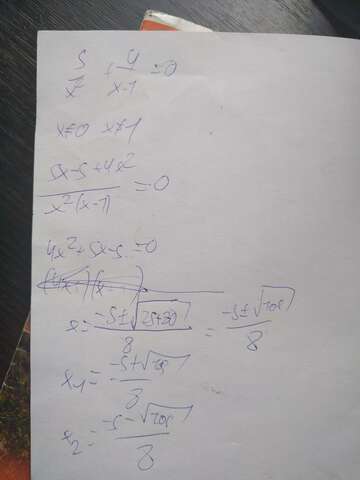 5/x² + 4/x-1 = 0
x≠0 x≠1
5x-5+4x²/x²(x-1) = 0
4x²+5x-5=0
x = -5±√25+80/8 = -5±√105/8
x₁ = -5+√105/8
x₂ = -5-√105/8